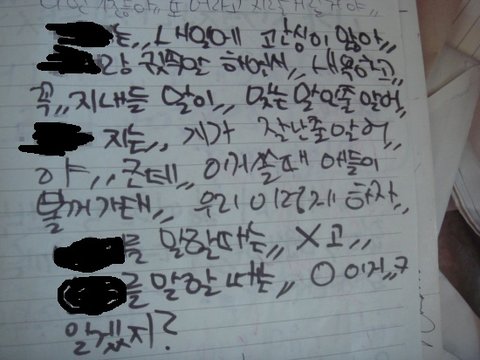 는,, 내일에 관심이 많아,,
랑 귓속말 하면서,, 내욕하고,,
꼭,, 지내들 말이,, 맞는 말인줄 알어,,
지는,, 지가 잘난줄 알어,,
야,,, 근데,, 이거 쓸때 애들이
볼꺼 가태,, 우리 이렇게 하자,,
를 말할때는,, X고,,,
를 말할 때는,, O 이거,,
알겠지?